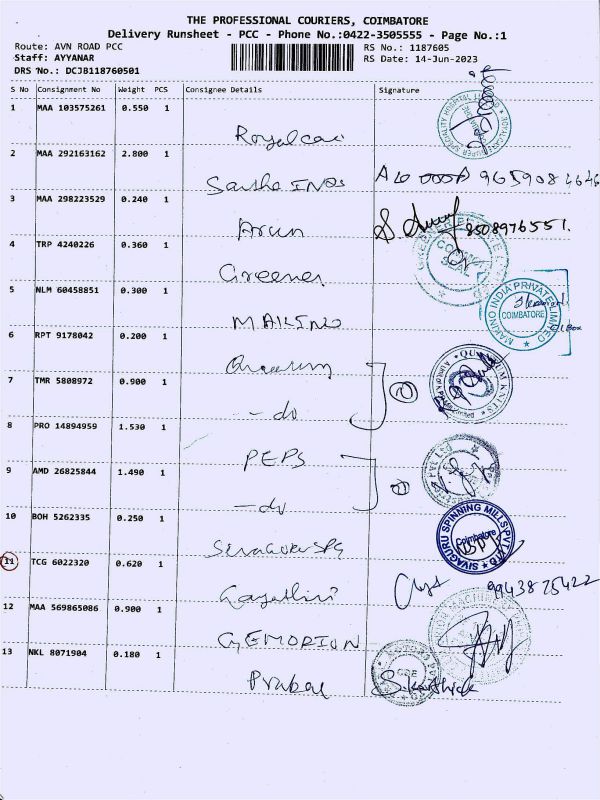 THE PROFESSIONAL COURIERS, COIMBATORE
Delivery Runsheet - PCC - Phone No.:0422-3505555 - Page No.:1
Route: AVN ROAD PCC
RS No.: 1187605
Staff: AYYANAR
RS Date: 14-Jun-2023
DRS No.: DCJB118760501
S No Consignment No Weight PCS Consignee Details Signature
1 MAA 103575261 0.550 1
Royalcare
2 MAA 292163162 2.800 1
INDs 9659084646
3 MAA 298223529 0.240 1
Arun 8508976551.
4 TRP 4240226 0.360 1
Greenex
5 NLM 60458851 0.300 1
MAKINO
MAKINO INDIA PRIVATE LIMITED
COIMBATORE
6 RPT 9178042 0.200 1
7 TMR 5808972 0.900 1
- do
8 PRO 14894959 1.530 1
PEPS
9 AMD 26825844 1.490 1
- do
10 BOH 5262335 0.250 1
SIVAGURU SPINNING MILLS PVT LTD
Coimbatore
11 TCG 6022320 0.620 1
Gayathiri 9943875422
12 MAA 569865086 0.900 1
GEMORION
13 NKL 8071904 0.180 1
Prabal S.Karthick